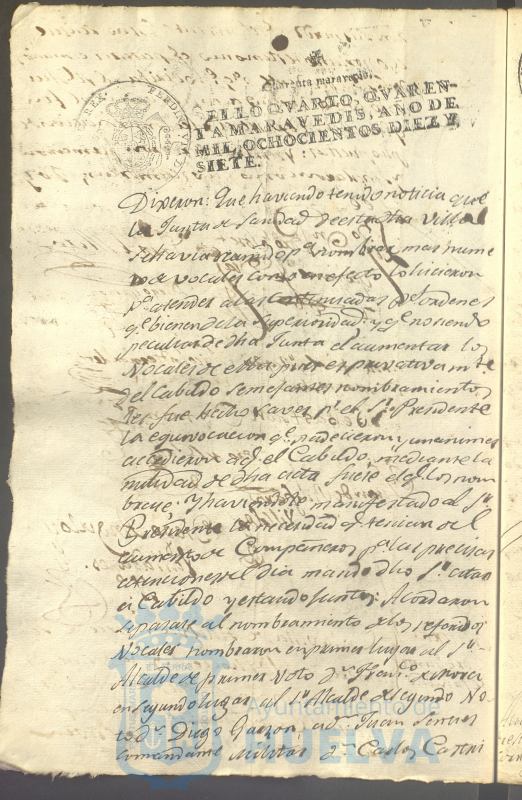 Quarenta maravedis.
SELLO QVARTO, QVAREN-
TA MARAVEDIS, AÑO DE
MIL OCHOCIENTOS DIEZ Y
SIETE.
Dixeron: Que haviendo tenido noticia que
la Junta de Sanidad de esta Villa
se havia para nombrar mas nume
ro de vocales como en efecto lo hicieron
pa atender a las continuadas ordenes
qe bienen de la Superioridad, y qe no siendo
peculiar de dha Junta el aumentar los
Vocales de ella pues es privativamte
del Cabildo semejantes nombramientos
les fue hecho saver pr el Sr Presidente
la equivocacion qe padecieron y unanimes
accedieron a qe el Cabildo mediante la
nulidad de dha acta fuese el qe los nom
brase. Y haviendo manifestado al Sr
Presidente la necesidad qe tenian del
aumento de Compañeros pa las precisas
atenciones del dia mando dho Sr citar
a Cabildo y estando juntos Acordaron
se pasase al nombramiento de los referidos
Vocales nombraron en primer lugar al Sr
Alcalde de primer Voto Dn Franco
en segundo lugar al Sr Alcalde de segundo Vo
to Dn Diego Garzon, a Dn Juan
Comandante Militar Dn Carlos
Ayuntamiento de
HUELVA